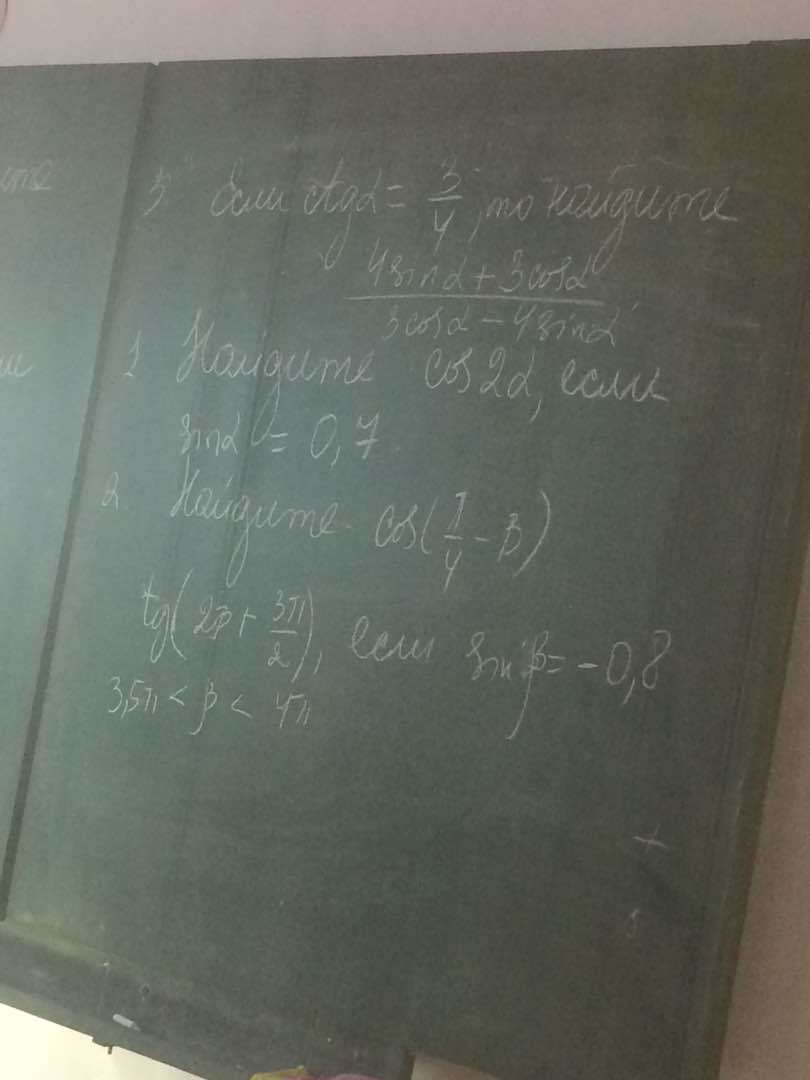 5 Если ctgα = 3/4, то найдите
(4sinα + 3cosα)/(3cosα - 4sinα)
1 Найдите cos2α, если
sinα = 0,7
2 Найдите cos(π/4 - β)
tg(2β + 3π/2), если sinβ = -0,8
3,5π < β < 4π